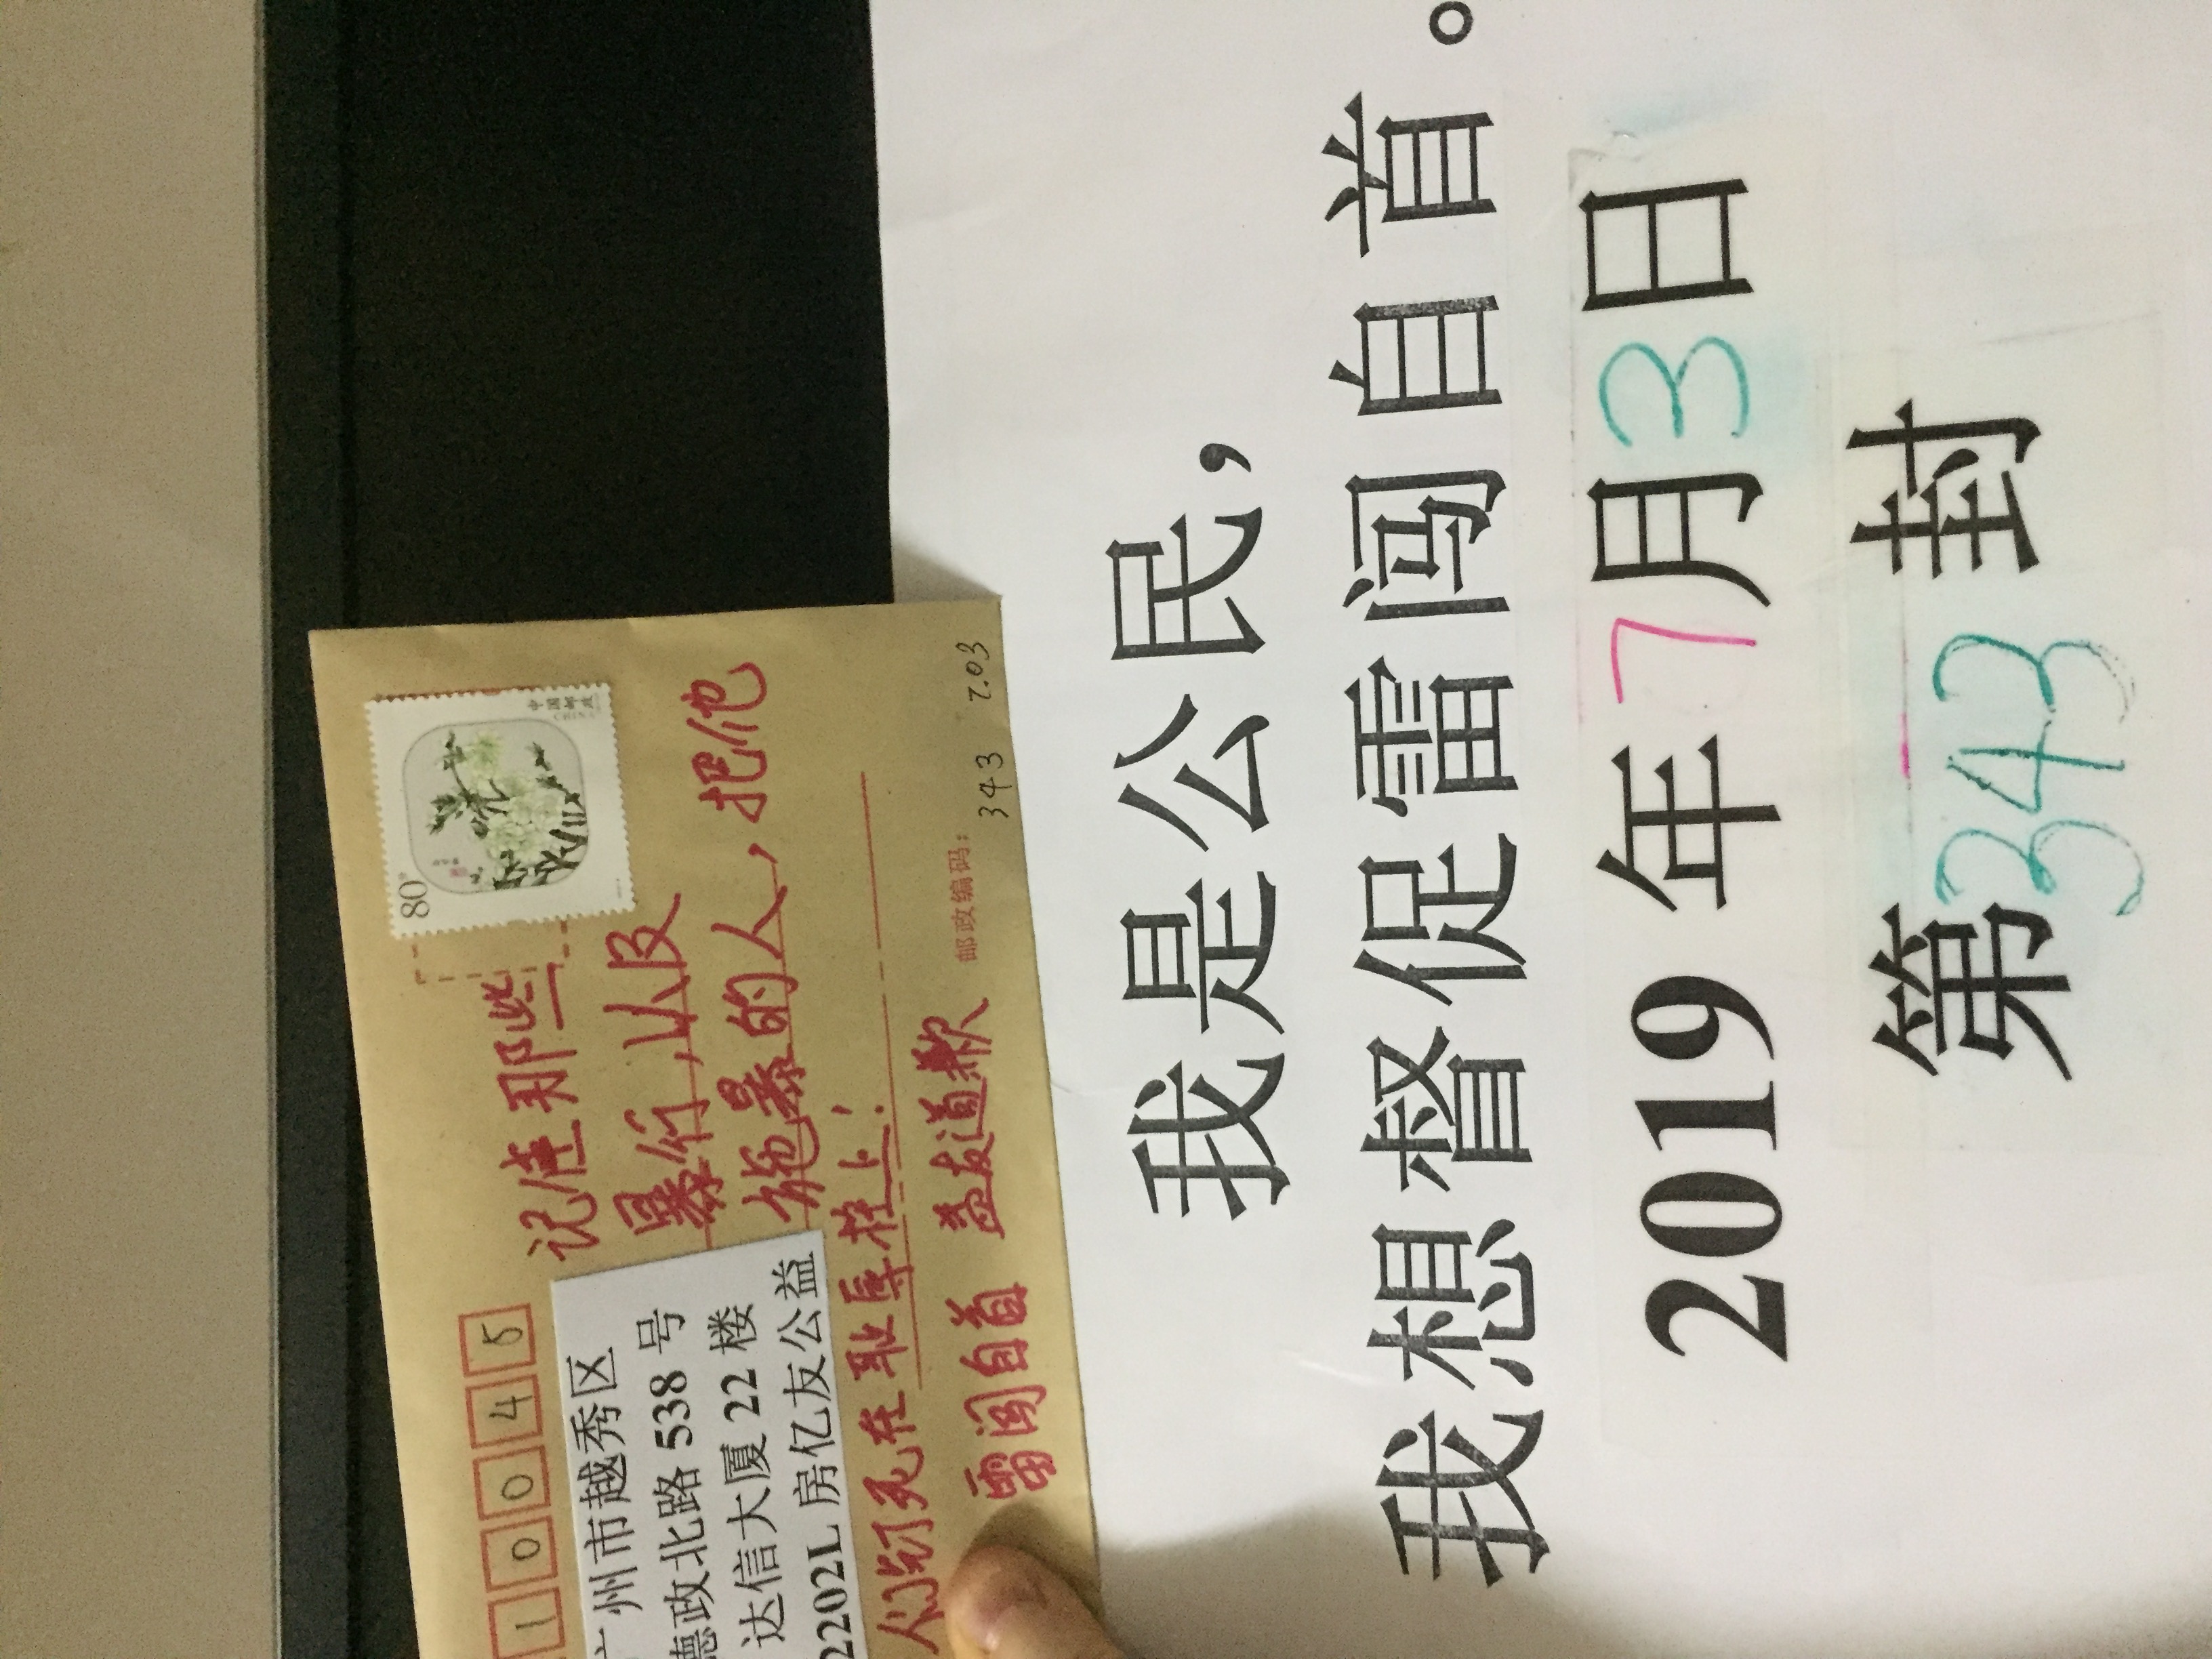 80分
中国邮政
10045
广州市越秀区
德政北路 538 号
达信大厦 22 楼
2202L 房亿友公益
记住那些
暴行，以及
施暴的人，把他
们钉死在耻辱柱上！
雷闯自首 益友道歉
邮政编码：
343 7.03
我是公民，
我想督促雷闯自首。
2019 年 7月3日
第343封